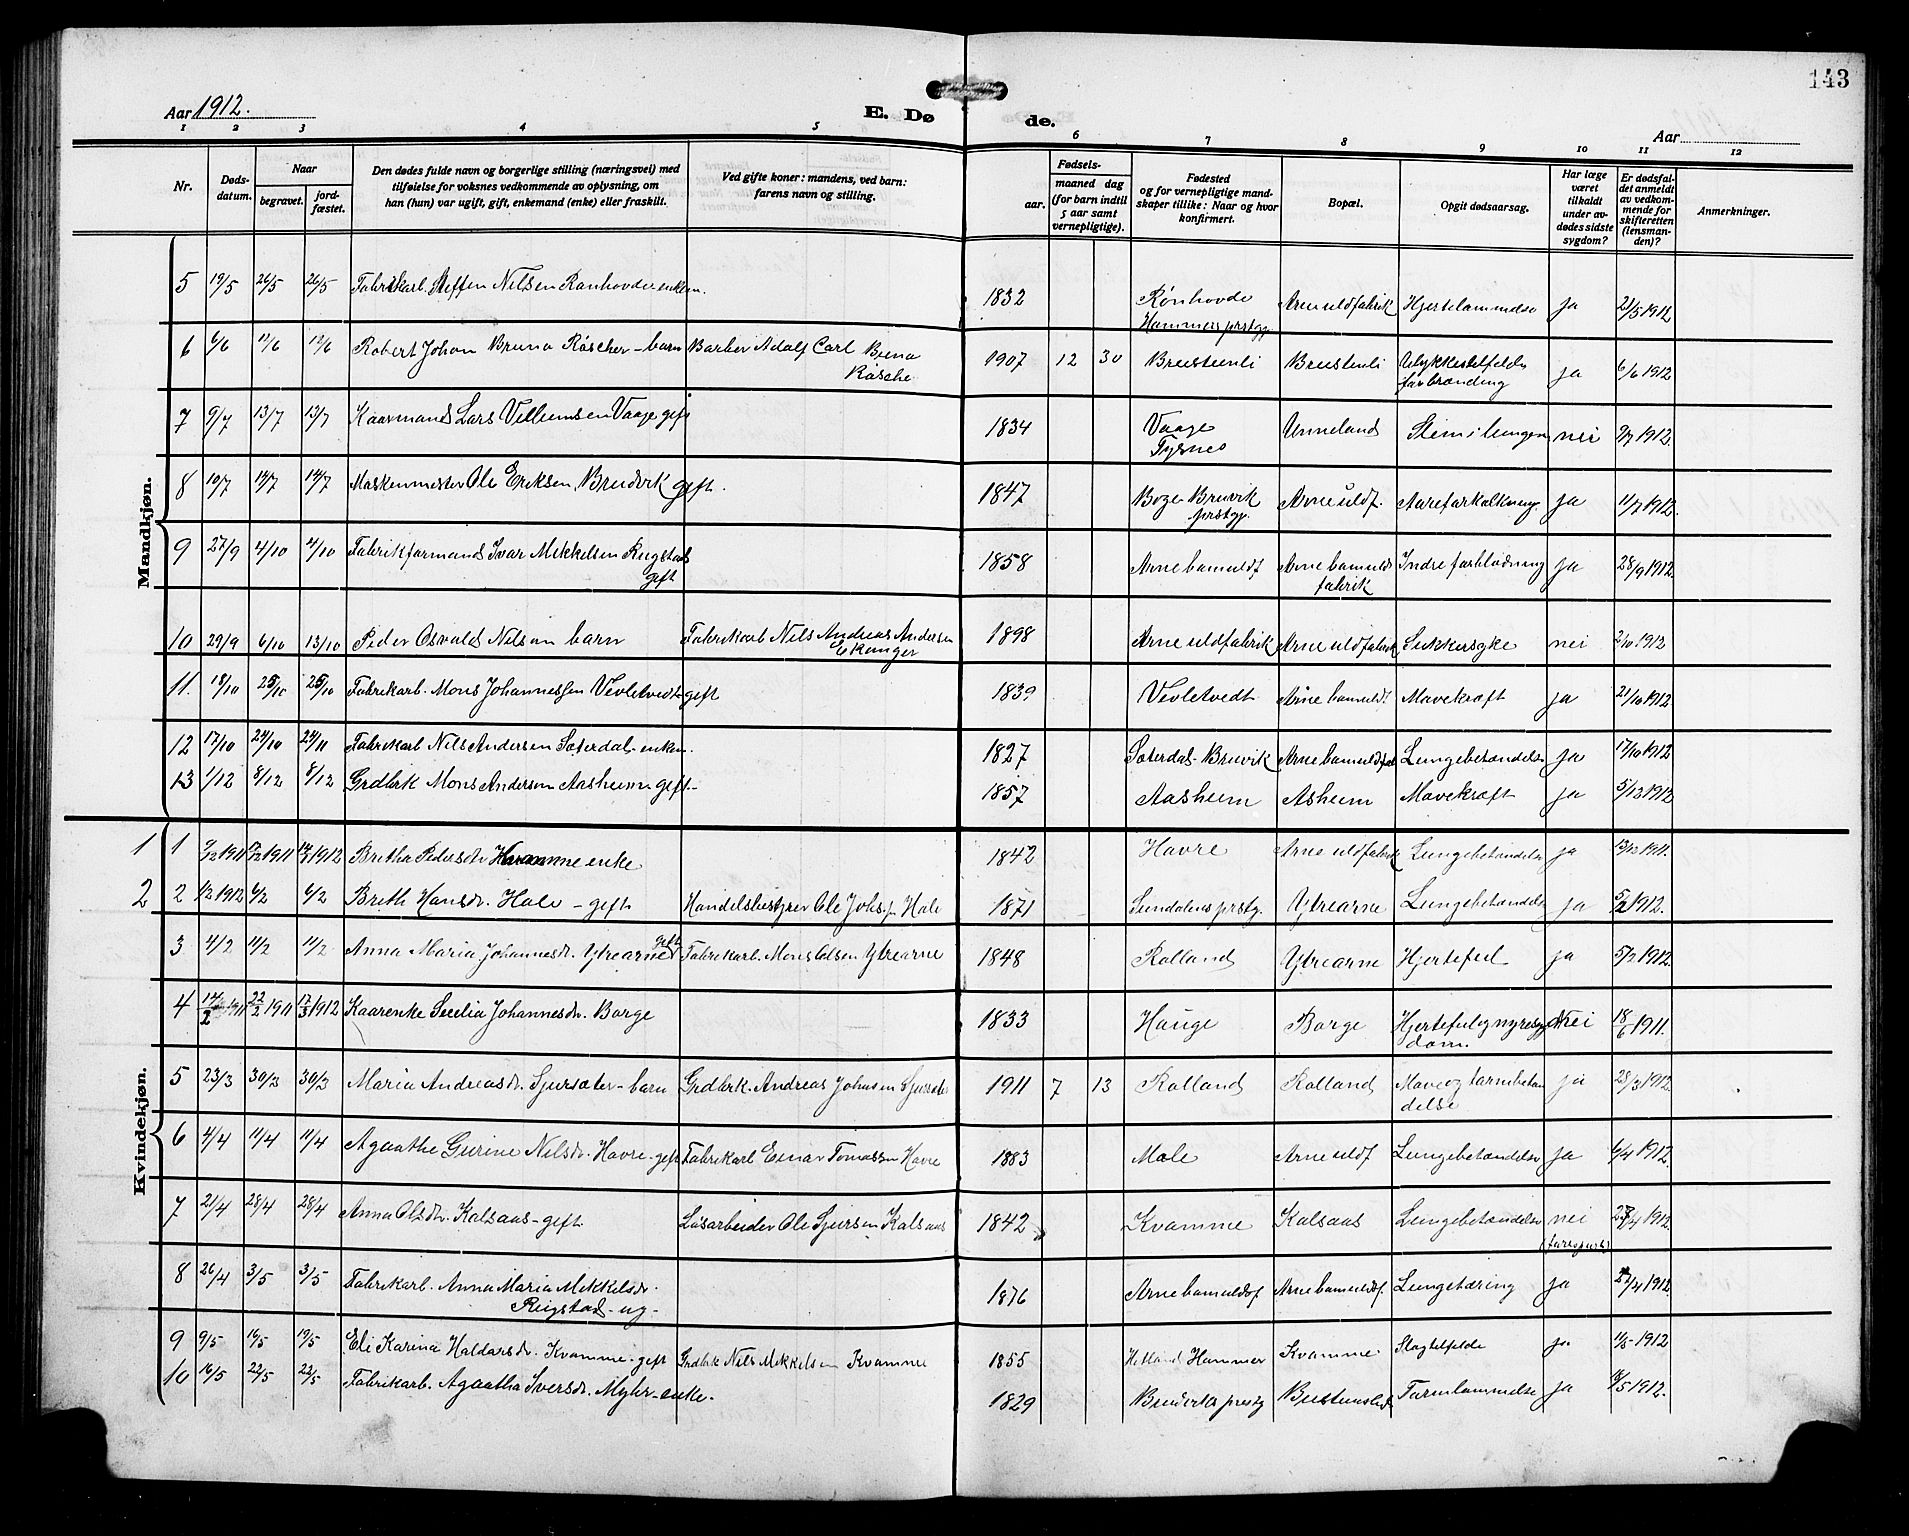 143
Aar 1912.
E. Dø de.
Aar
1 2 3 4 5 6 7 8 9 10 11 12
Nr.
Døds-datum.
Naar
begravet.
jord-fæstet.
Den dødes fulde navn og borgerlige stilling (næringsvei) med tilføielse for voksnes vedkommende av oplysning, om han (hun) var ugift, gift, enkemand (enke) eller fraskilt.
Ved gifte koner: mandens, ved barn: farens navn og stilling.
Fødsels-
aar.
maaned dag
(for barn indtil 5 aar samt vernepligtige).
Fødested og for vernepligtige mandskaper tillike: Naar og hvor konfirmert.
Bopæl.
Opgit dødsaarsag.
Har læge været tilkaldt under avdødes sidste sygdom?
Er dødsfaldet anmeldt av vedkommende for skifteretten (lensmanden)?
Anmerkninger.
Mandkjøn.
5 19/5 26/5 26/5 Fabrikarb. Steffen Nilsen Ranhovde enkem. 1832 Rønhovde Hammers prstgj. Arne uldfabrik Hjertelammelse ja 21/5 1912
6 6/6 12/6 12/6 Robert Johan Bruno Röscher - barn Barber Adolf Carl Bruno Rösche 1907 12 30 Breistenli Breistenli Ulykkestilfelde forbrænding ja 6/6 1912
7 9/7 13/7 13/7 Kaarmand Lars Villumsen Vaage gift 1834 Vaage Tysnes Unneland Slim i lungen nei 9/7 1912.
8 10/7 14/7 14/7 Maskinmester Ole Eriksen Bruvik gift. 1847 Boge Bruvik prstgj. Arne uldf. Aareforkalkning. ja 11/7 1912.
9 27/9 4/10 4/10 Fabrikformand Ivar Mikkelsen Reigstad gift 1858 Arne bomuldf Arne bomulds fabrik Indre forblødning ja 28/9 1912.
10 29/9 6/10 13/10 Peder Osvald Nilsen barn Fabrikarb Nils Andreas Andersen Ekanger 1898 Arne uldfabrik Arne uldfabrik Sukkersyke nei 2/10 1912
11. 18/10 25/10 25/10 Fabrikarb. Mons Johannessen Vevletvedt gift 1839 Vevletvedt Arne bomuldf Mavekræft ja 21/10 1912
12 17/10 24/10 24/11 Fabrikarb Nils Andersen Sæterdal - enkem. 1827 Sæterdal - Bruvik Arne bomuldsfab Lungebetændelse ja 17/10 1912
13 1/12 8/12 8/12 Grdbrk Mons Andersen Aasheim gift - 1857 Aasheim Asheim Mavekræft ja 5/12 1912
Kvindekjøn.
1 1 7/12 1911 17/12 1911 14/3 1912 Britha Pedersdr. Kvamme enke 1842 Havre Arne uldfabrik Lungebetændelse ja 13/12 1911.
2 2 1/2 1912 6/2 6/2 Brith Hansdr. Hole - gift Handelsbestyrer Ole Johs. Hole 1871 Sundalens prstgj. Ytrearne Lungebetændelse ja 5/2 1912.
3 4/2 11/2 11/2 Anna Maria Johannesdr. Ytrearne gift Fabrikarb. Mons Olsen Ytrearne 1848 Rolland Ytrearne Hjertefeil ja 5/2 1912.
4 14/2 1911 22/2 1911 17/3 1912 Kaarenke Secilia Johannesdr. Borge 1833 Hauge Borge Hjertefeil og nyresygdom. Nei 18/6 1911.
5 23/3 30/3 30/3 Maria Andreasdr. Sjursæter - barn Grdbrk. Andreas Johnsen Sjursæter 1911 7 13 Rolland Rolland Mave og tarmbetændelse ja 28/3 1912.
6 4/4 11/4 11/4 Agaathe Gurine Nilsdr. Havre - gift Fabrikarb Einar Tomassen Havre 1883 Mæle Arne uldf Lungebetændelse ja 6/4 1912.
7 21/4 28/4 28/4 Anna Olsdr. Kalsaas - gift Løsarbeider Ole Sjursen Kalsaas 1842 Kvamme Kalsaas Lungebetændelse nei (forespurt) 23/4 1912.
8 26/4 3/5 3/5 Fabrikarb. Anna Maria Mikkelsdr. Reigstad - ug - 1876 Arne bomuldsf Arne bomuldsf. Lungetæring ja 27/4 1912.
9 9/5 16/5 19/5 Eli Karina Haldorsdr. Kvamme - gift Grdbrk Nils Mikkelsen Kvamme 1855 Hetland Hammer Kvamme Slagtilfelde ja 11/5 1912
10 16/5 22/5 22/5 Fabrikarb. Agaatha Iversdr. Myhr - enke. 1829 Bruviks prestgj Tarmlammelse ja 17/5 1912.